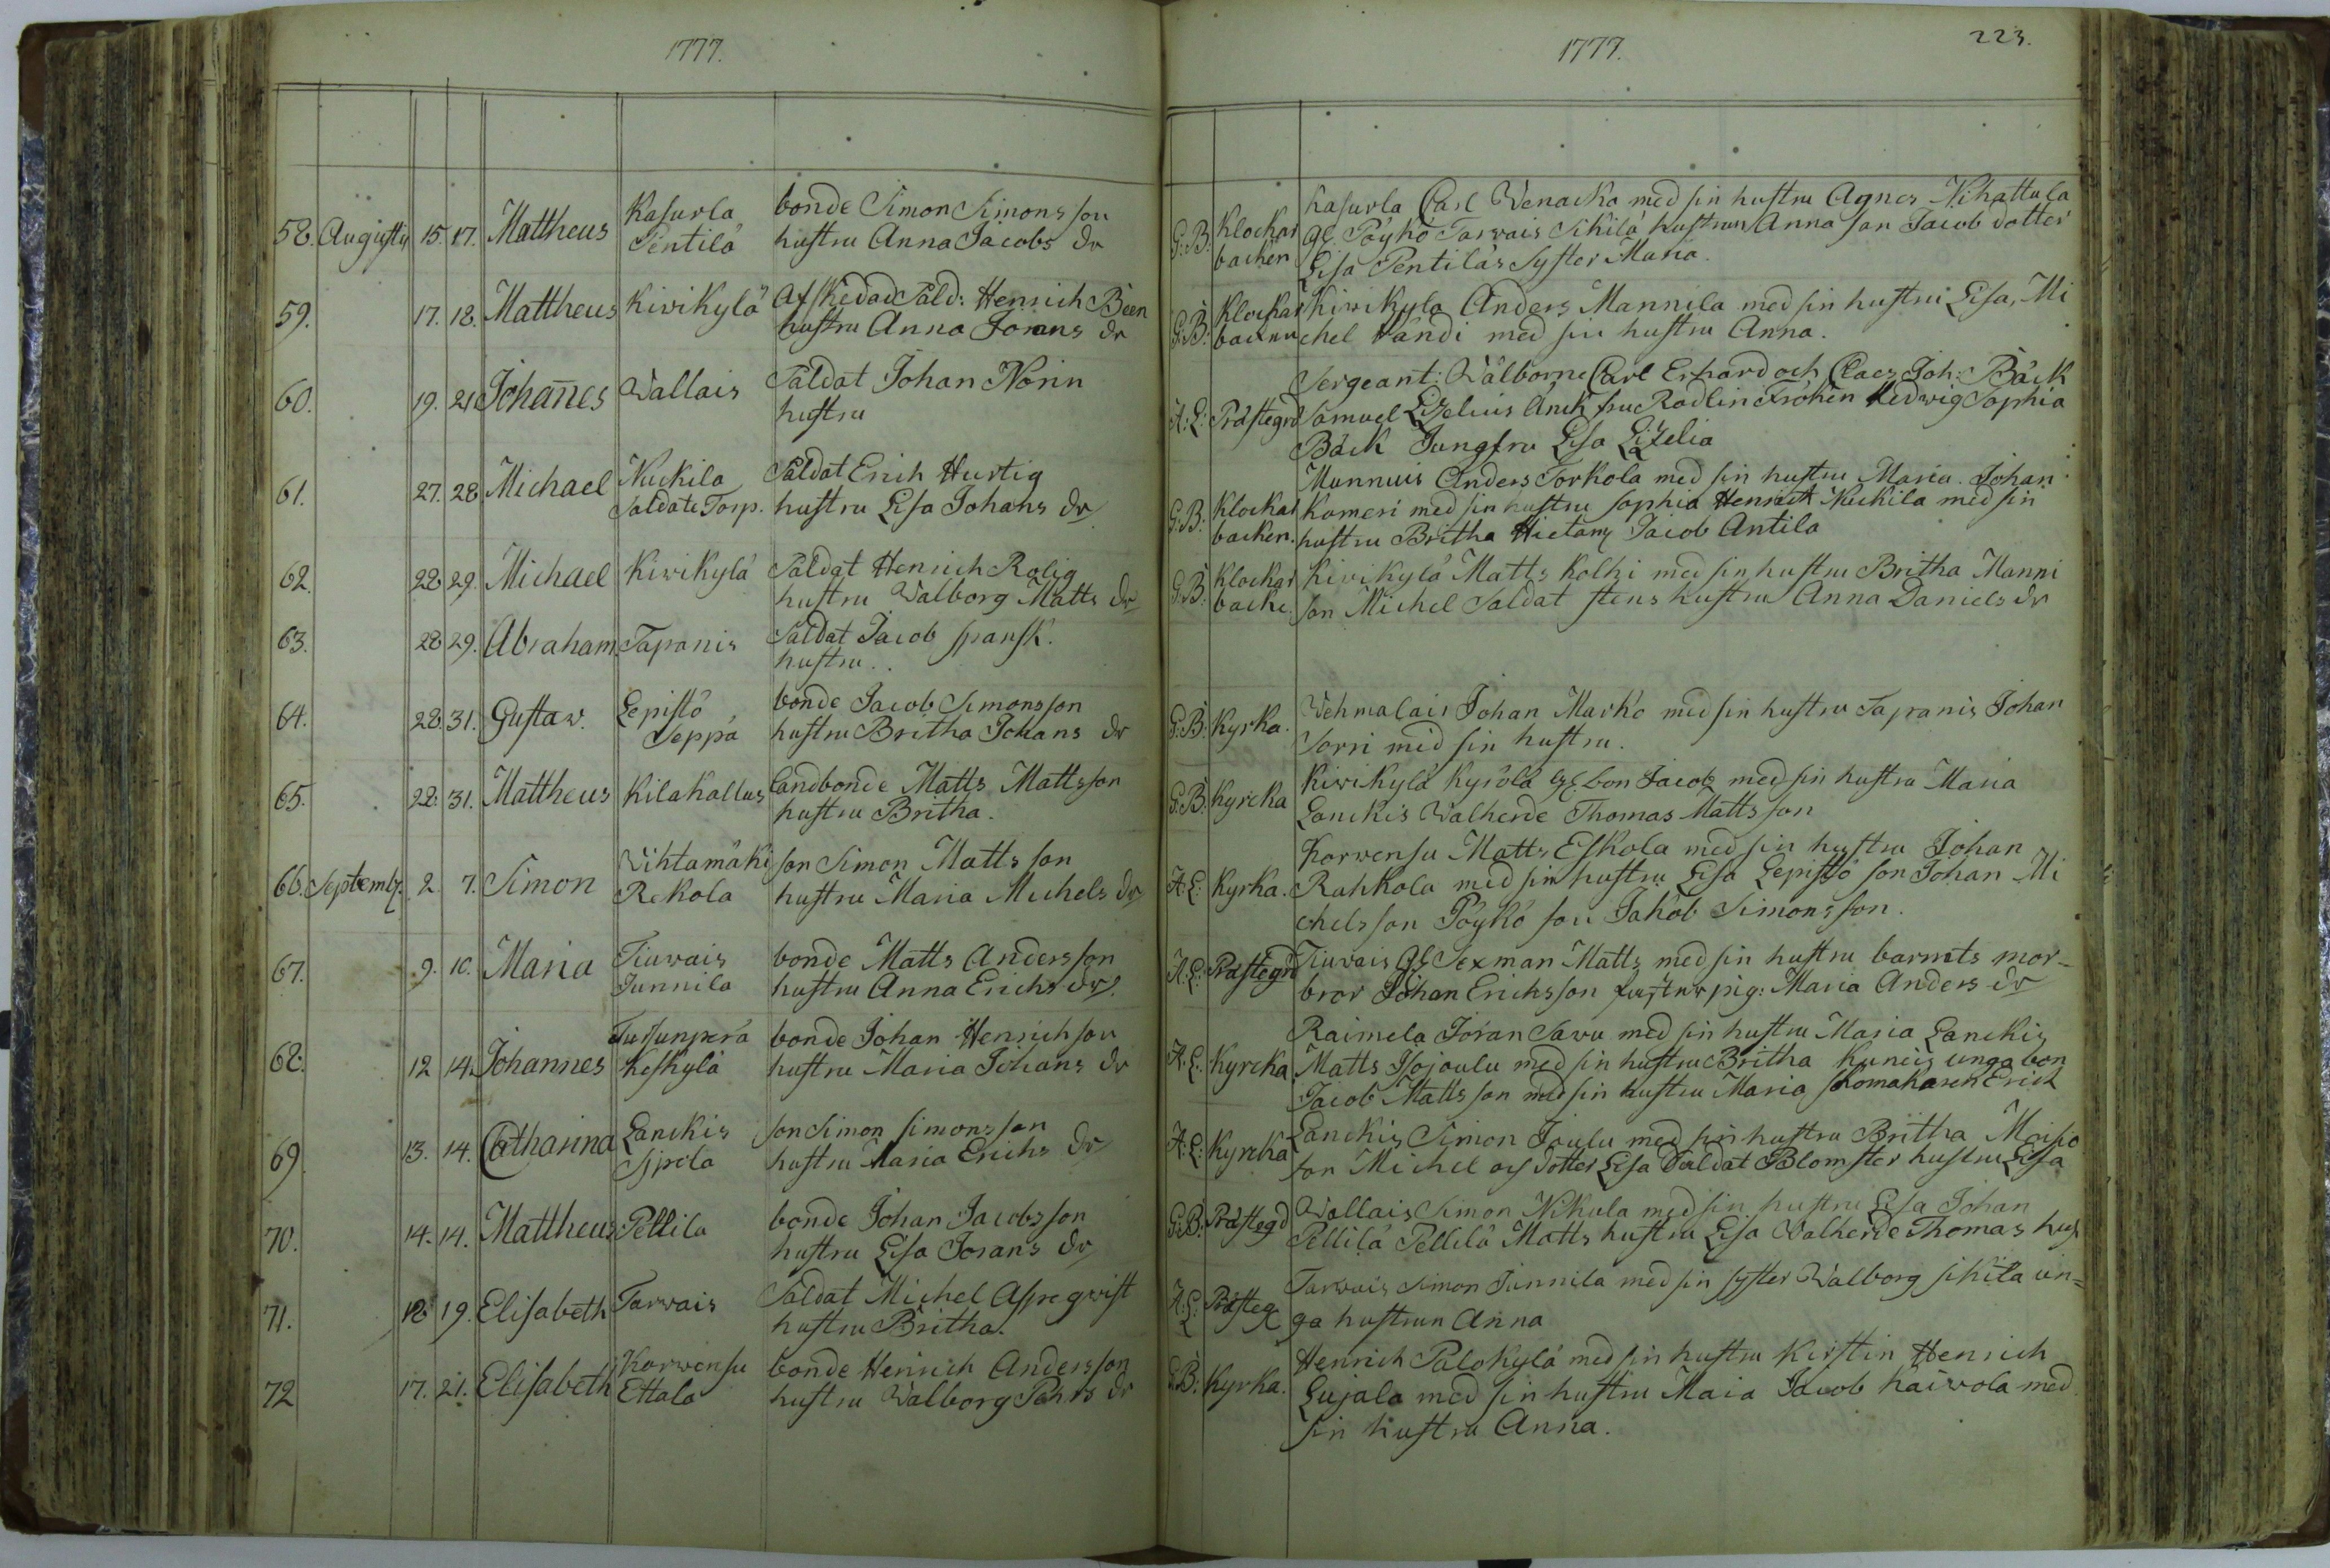 1777.
58. Augusty 15. 17. Mattheus Kasurla bonde Simon Simons son
Pentilä hustru Anna Jacobs dr
59. 17. 18. Mattheus Kivikylä Afskedad Sald: Henrich Been
hustru Anna Jörans dr
60. 19. 21 Johanes Wallais Saldat Johan Norin
hustru
61. 27. 28 Michael Nuckila Saldat Erich Hurtig
Saldate Torp. hustru Lisa Johans dr
62. 28 29. Michael Kivikylä Saldat Henrich Rolig
hustru Walborg Matts dr
63. 28 29. Abraham Tapanis Saldat Jacob spansk.
hustru..
64. 28. 31. Gustaw. Lepistö bonde Jacob Simonsson
Seppä hustru Britha Johans dr
65. 28. 31. Mattheus Kilakallus Landbonde Matts Mattsson
hustru Britha.
66. Septemb. 2 7. Simon Wihtamäki son Simon Matts son
Rekola hustru Maria Michels dr
67. 9. 10. Maria Tiuwais bonde Matts Andersson
Junnila hustru Anna Erichs dr
68. 12 14. Johannes Tursunperä bonde Johan Henrichson
Keskylä hustru Maria Johans dr
69. 13. 14. Catharina Lanckis son Simon simonsson
Sipola hustru Maria Erichs dr
70. 14. 14. Mattheus Pellila bonde Johan Jacobsson
hustru Lisa Jorans dr
71. 18 19. Elisabeth Tarwais Saldat Michel Aspegwist
hustru Britha.
72 17. 21. Elisabeth Korwensu bonde Henrich Andersson
Ettala hustru Walborg dr
1777.
223.
Kasurla Carl Wenacko med sin hustru Agnes Nihattula
G: B: Klockar gl. Päykö Tarwais Sikilä hustrun Anna son Jacob dotter
backen Lisa Pentiläs Syster Maria.
G: B: Klockar Kivikyla Anders Mannila med sin hustru Lisa, Mi
backen chel med sin hustru Anna.
Sergeant: Wålborne Carl Erhard och Claes Joh: Bäck
A: L: Prästegrd Samuel Lizelius Fröken Hedwig Sophia
Bäck Jungfru Lisa Lizelia
Munnuis Anders Torkola med sin hustru Maria. Johan
G: B: Klockar Kameri med sin hustru Sophia Henrich Nuckila med sin
backen. hustru Britha Hietamz Jacob Antila
G: B: Klockar Kivikylä Matts Kolhi med sin hustru Britha Manni
backe. son Michel Saldat stens hustru Anna Daniels dr
G: B: Kyrka. Wehmalais Johan Marko med sin hustru Tapanis Johan
Sorri med sin hustru.
G: B: Kyrcka Kivikylä Kyrölä gl bon Jacob med sin hustru Maria
Lanckis Walherde Thomas Matts son
Korwensu Matts Eskola med sin hustru Johan
A: L: Kyrka. Rahkola med sin hustru Lisa Lepistö son Johan Mi
chelsson Pöykö son Jakob Simonsson.
A: L: Prästegrd Tiuvais gl Sexman Matts med sin hustru barnets mor-
bror Johan Erichsson pig: Maria Anders dr
Raimela Jöran Savu med sin hustru Maria Lanckis
A: L: Kyrcka. Matts Isojoulu med sin hustru Britha Kuncis unga bon
Jacob Mattsson med sin hustru Maria skomakaren Erich
A: L: Kyrcka Lanckis Simon Joulu med sin hustru Britha Maisio
son Michel och dotter Lisa Saldat Blomster hustru Lisa
G: B: Prästegd Wallais Simon Nikula med sin hustru Lisa Johan
Pellilä Pellilä Matts hustru Lisa Walherde Thomas hus
A: L: Prästeg Tarwais Simon Junnila med sin syster Walborg sikila un=
ga hustrun Anna
Henrich Palokylä med sin hustru Kirstin Henrich
G: B: Kyrka. Lujala med sin hustru Maia Jacob Kaiwola med
sin hustru Anna.